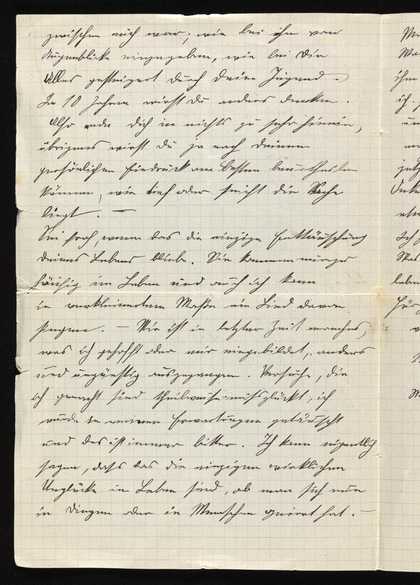 zwischen euch war; wie bei ihr vom
Augenblicke eingegeben, wie bei Dir
Alles gesteigert durch Deine Jugend –
In 10 Jahren wirst du anders denken.
Also rede dich in nichts zu sehr hinein,
übrigens wirst du ja nach deinem
persönlichen Eindruck am besten beurtheilen
können, wie tief oder seicht die Sache
liegt. —
Sei froh, wenn das die einzige Enttäuschung
Deines Lebens bliebe. Sie kommen
häufig im Leben und auch ich kann
in verkleinertem Maße ein Lied davon
singen. – Wie ist in letzter Zeit manches,
was ich gehofft oder mir eingebildet, anders
und ungünstig ausgegangen. Versuche, die
ich gemacht sind theilweise missglückt, ich
wurde in meinen Erwartungen getäuscht
und das ist immer bitter. Ich kann eigentlich
sagen, daß das die einzigen wirklichen
Unglücke im Leben sind, ob man sich nun
in Dingen oder in Menschen geirrt hat. –